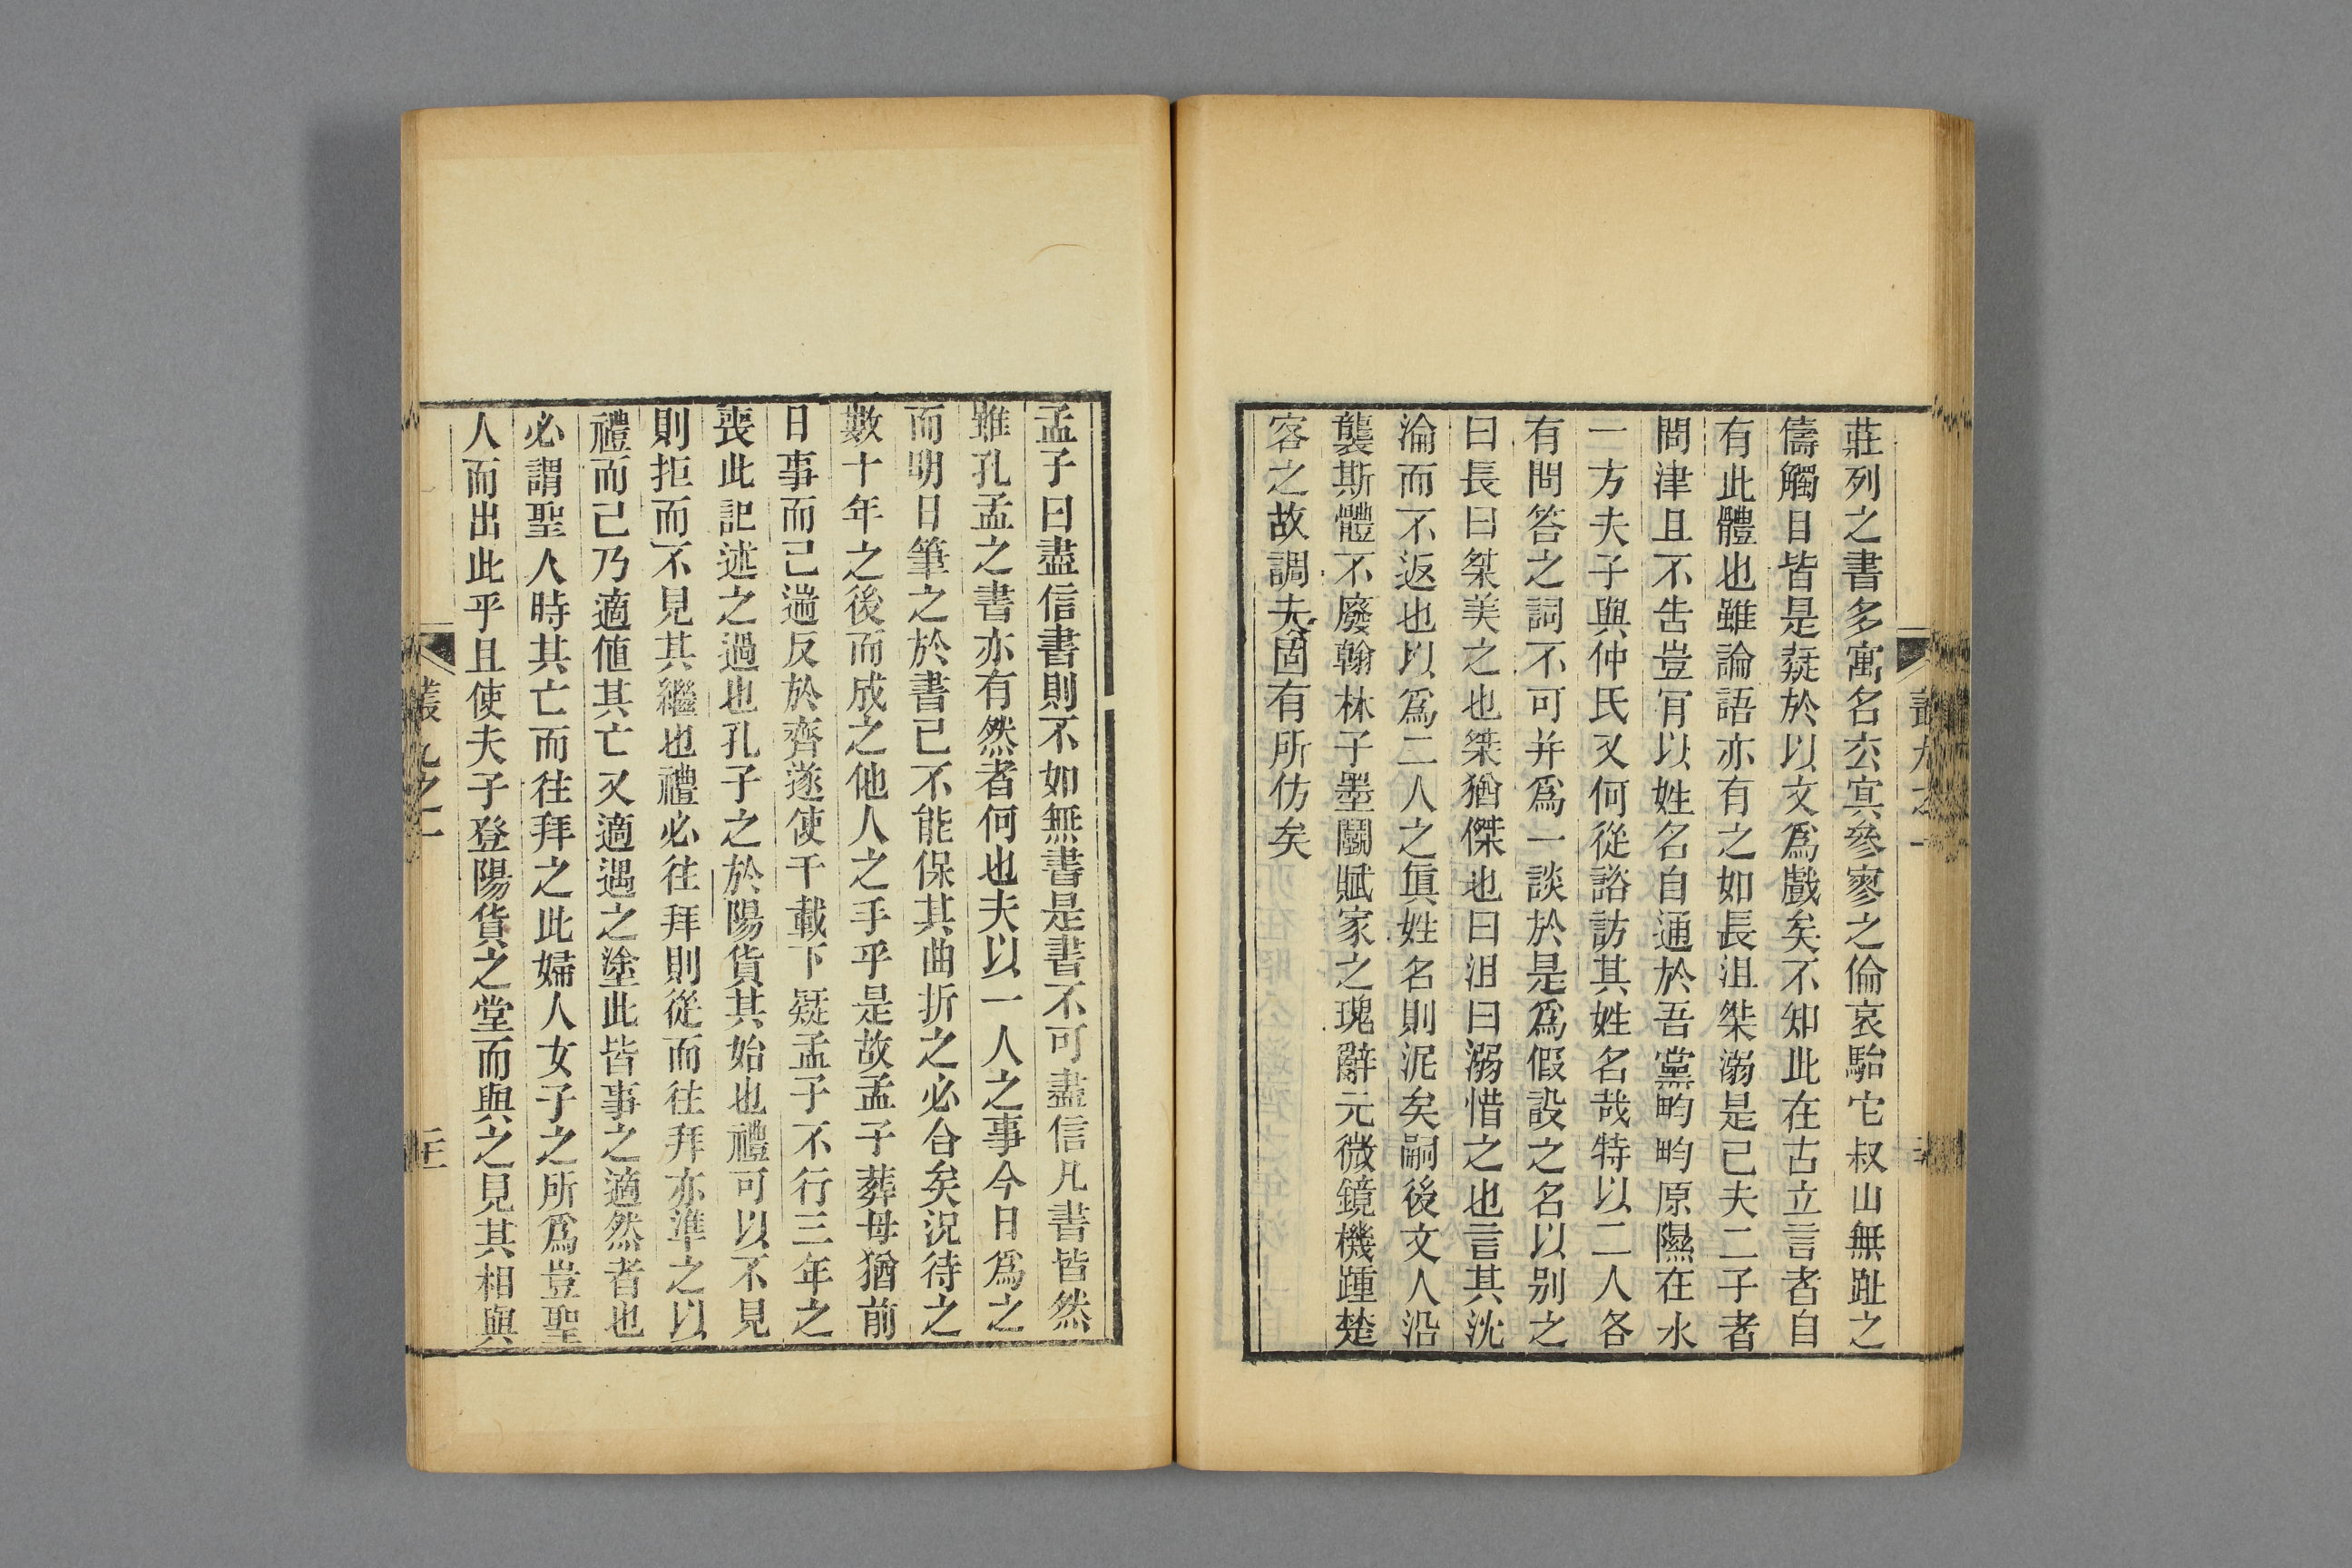 莊列之書多寓名玄宾參寥之倫哀駘它叔山無趾之
儔觸目皆是疑於以文爲戲矣不知此在古立言者自
有此體也雖論語亦有之如長沮桀溺是已夫二子者
問津且不告豈肎以姓名自通於吾黨畇畇原隰在水
一方夫子與仲氏又何從諮訪其姓名哉特以二人各
有問答之詞不可并爲一談於是爲假設之名以別之
曰長曰桀美之也桀猶傑也曰沮曰溺惜之也言其沈
淪而不返也以爲二人之眞姓名則泥矣嗣後文人沿
襲斯體不廢翰林子墨鬭賦家之瑰辭元微鏡機踵楚
客之故調夫固有所仿矣
孟子曰盡信書則不如無書是書不可盡信凡書皆然
雖孔孟之書亦有然者何也夫以一人之事今日爲之
而明日筆之於書已不能保其曲折之必合矣況待之
數十年之後而成之他人之手乎是故孟子葬母猶前
日事而已遄反於齊遂使千載下疑孟子不行三年之
喪此記述之過也孔子之於陽貨其始也禮可以不見
則拒而不見其繼也禮必往拜則從而往拜亦準之以
禮而已乃適値其亡又適遇之塗此皆事之適然者也
必謂聖人時其亡而往拜之此婦人女子之所爲豈聖
人而出此乎且使夫子登陽貨之堂而與之見其相與
叢九之一